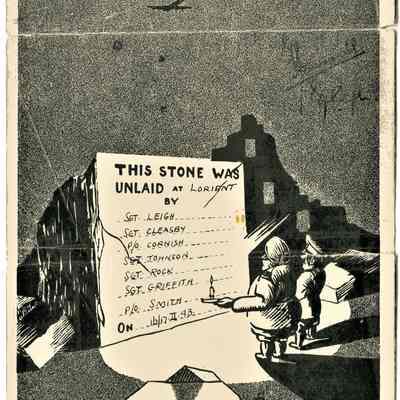 THIS STONE WAS
UNLAID AT LORIENT
BY
SGT. LEIGH
SGT. CLEASBY
P/O. CORNISH
SGT JOHNSON
SGT. ROCK
SGT. GRIFFITH
P/O. SMITH
ON 16/17 II 43.